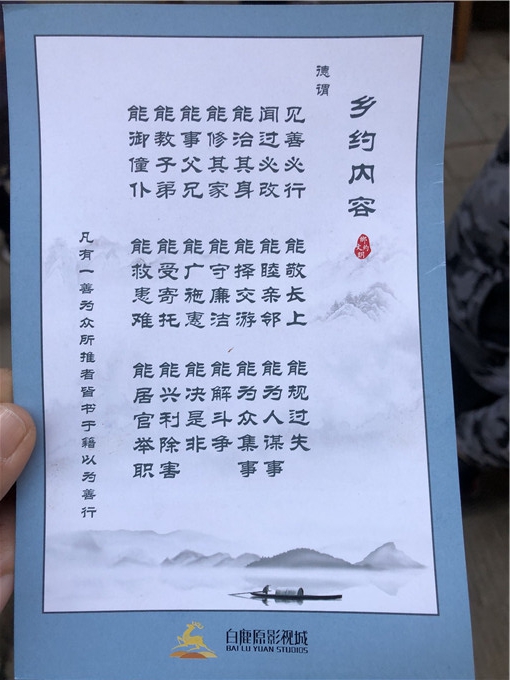 乡约内容
德谓
见善必行
闻过必改
能治其身
能修其家
能事父兄
能教子弟
能御僮仆
能敬长上
能睦亲邻
能择交游
能守廉洁
能广施惠
能受寄托
能救患难
能规过失
能为人谋事
能为众集事
能解斗争
能决是非
能兴利除害
能居官举职
凡有一善为众所推者皆书于籍以为善行
白鹿原影视城
BAI LU YUAN STUDIOS